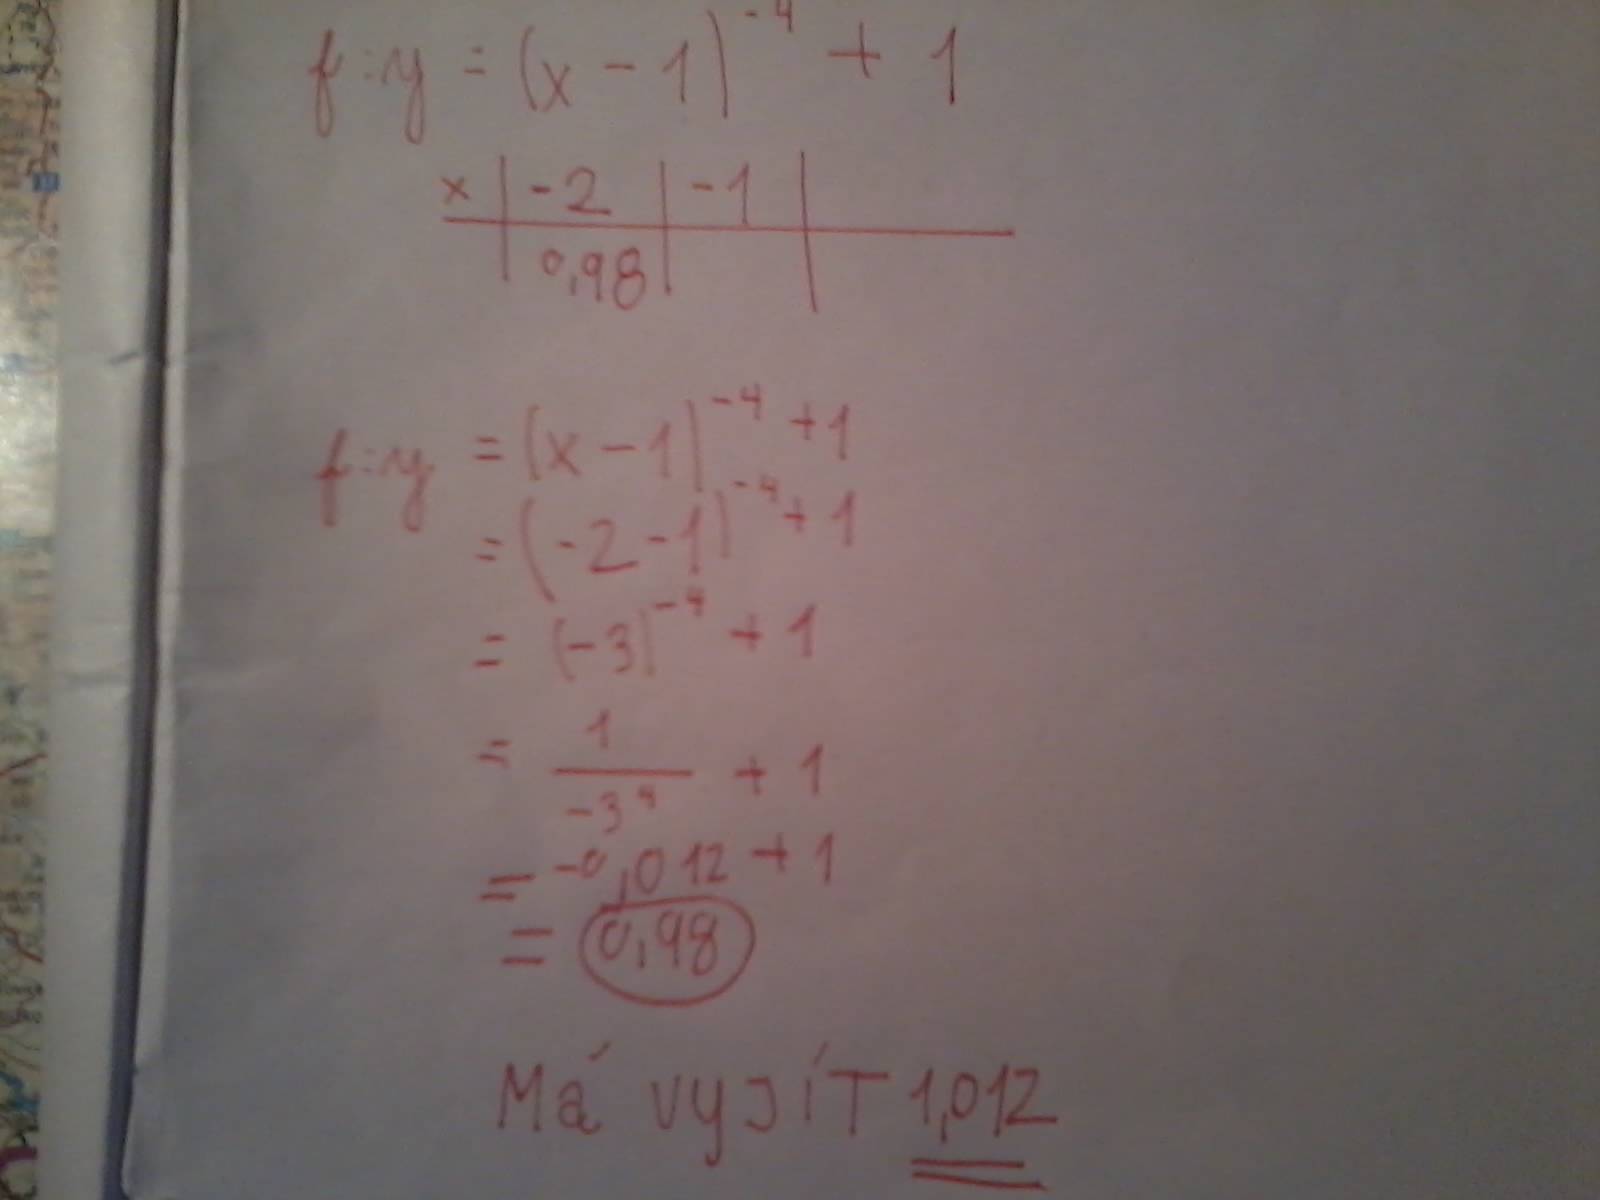 f:y = (x - 1)^-4 + 1
x | -2 | -1 |
| 0,98 | |
f:y = (x - 1)^-4 + 1
= (-2 - 1)^-4 + 1
= (-3)^-4 + 1
= 1/-3^4 + 1
= -0,012 + 1
= 0,98
Má vyjít 1,012